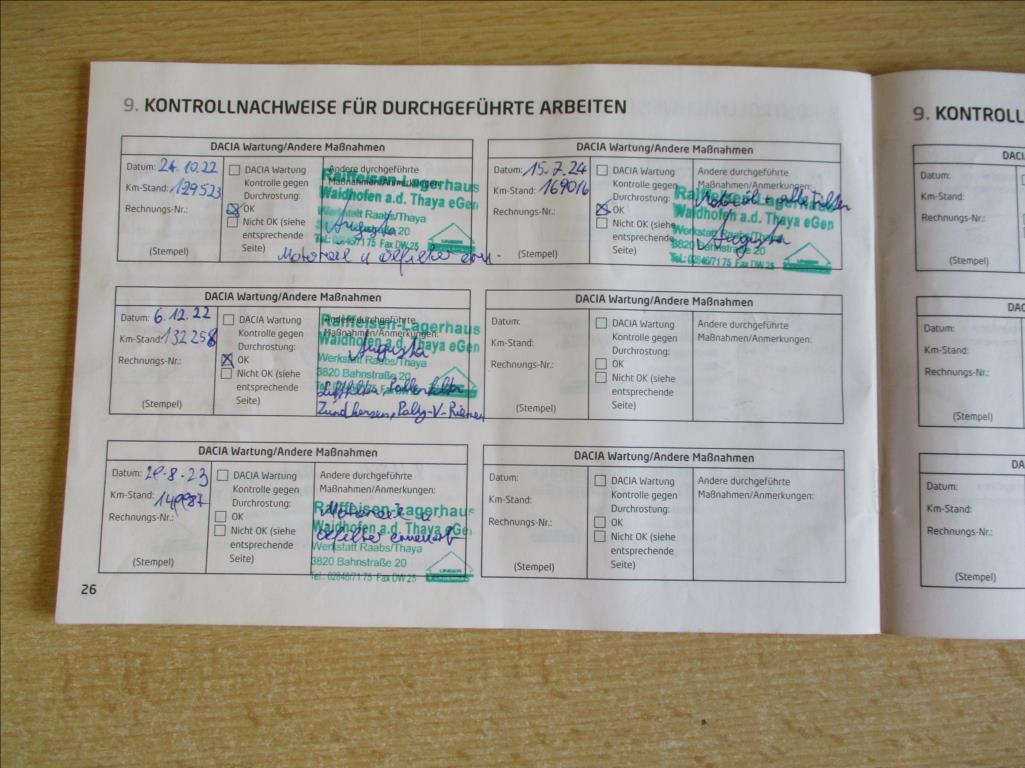 9. KONTROLLNACHWEISE FÜR DURCHGEFÜHRTE ARBEITEN
DACIA Wartung/Andere Maßnahmen
Datum: 24.10.22
Km-Stand: 129523
Rechnungs-Nr.:
(Stempel)
DACIA Wartung
Kontrolle gegen
Durchrostung:
OK
Nicht OK (siehe
entsprechende
Seite)
Andere durchgeführte
Maßnahmen/Anmerkungen:
Raiffeisen-Lagerhaus
Waidhofen a.d. Thaya eGen
Werkstatt Raabs/Thaya
Tel.: 02846/71 75 Fax DW 25
Motoroel u Oelfilter ern.
DACIA Wartung/Andere Maßnahmen
Datum: 6.12.22
Km-Stand: 132258
Rechnungs-Nr.:
(Stempel)
DACIA Wartung
Kontrolle gegen
Durchrostung:
OK
Nicht OK (siehe
entsprechende
Seite)
Andere durchgeführte
Maßnahmen/Anmerkungen:
Raiffeisen-Lagerhaus
Waidhofen a.d. Thaya eGen
Werkstatt Raabs/Thaya
3820 Bahnstraße 20
Luftfilter, Pollenfilter
Zündkerzen, Poly-V-Riemen
DACIA Wartung/Andere Maßnahmen
Datum: 29.8.23
Km-Stand:
Rechnungs-Nr.:
(Stempel)
DACIA Wartung
Kontrolle gegen
Durchrostung:
OK
Nicht OK (siehe
entsprechende
Seite)
Andere durchgeführte
Maßnahmen/Anmerkungen:
Raiffeisen-Lagerhaus
Waidhofen a.d. Thaya eGen
Werkstatt Raabs/Thaya
3820 Bahnstraße 20
Tel.: 02846/71 75 Fax DW 25
Motoroel u
Oelfilter erneuert
DACIA Wartung/Andere Maßnahmen
Datum: 15.7.24
Km-Stand: 169016
Rechnungs-Nr.:
(Stempel)
DACIA Wartung
Kontrolle gegen
Durchrostung:
OK
Nicht OK (siehe
entsprechende
Seite)
Andere durchgeführte
Maßnahmen/Anmerkungen:
Motoröl + alle Filter
Raiffeisen-Lagerhaus
Waidhofen a.d. Thaya eGen
Werkstatt Raabs/Thaya
3820 Bahnstraße 20
Tel.: 02846/71 75 Fax DW 25
DACIA Wartung/Andere Maßnahmen
Datum:
Km-Stand:
Rechnungs-Nr.:
(Stempel)
DACIA Wartung
Kontrolle gegen
Durchrostung:
OK
Nicht OK (siehe
entsprechende
Seite)
Andere durchgeführte
Maßnahmen/Anmerkungen:
DACIA Wartung/Andere Maßnahmen
Datum:
Km-Stand:
Rechnungs-Nr.:
(Stempel)
DACIA Wartung
Kontrolle gegen
Durchrostung:
OK
Nicht OK (siehe
entsprechende
Seite)
Andere durchgeführte
Maßnahmen/Anmerkungen:
26
9. KONTROLL
DACI
Datum:
Km-Stand:
Rechnungs-Nr.:
(Stempel)
DAC
Datum:
Km-Stand:
Rechnungs-Nr.:
(Stempel)
DA
Datum:
Km-Stand:
Rechnungs-Nr.:
(Stempel)